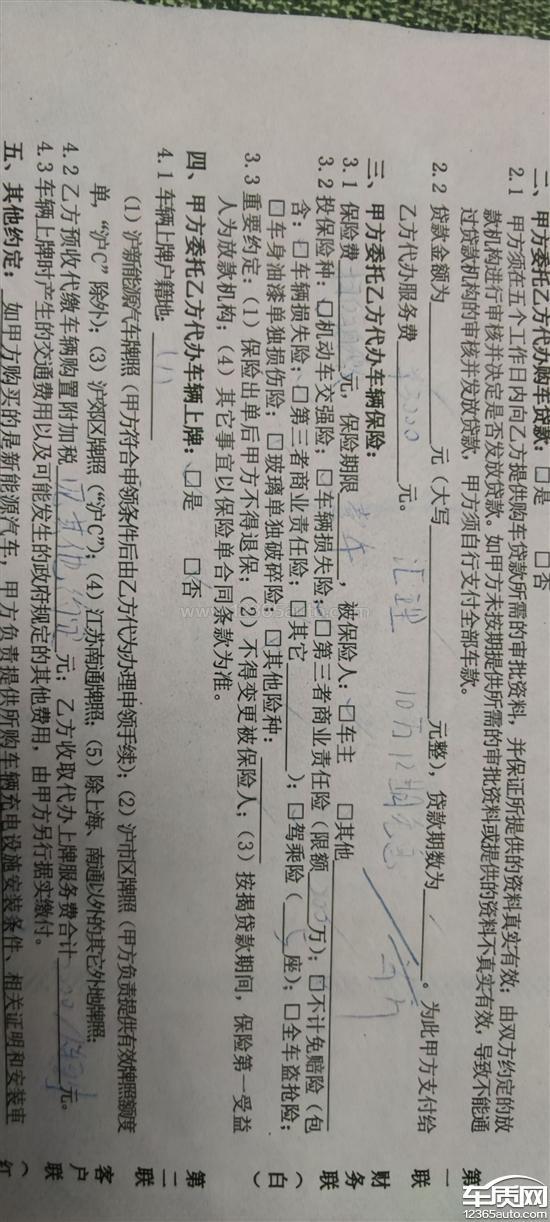 二、甲方委托乙方代办购车贷款：□是 □否
2.1 甲方须在五个工作日内向乙方提供购车贷款所需的审批资料，并保证所提供的资料真实有效，由双方约定的放
款机构进行审核并决定是否发放贷款。如甲方未按期提供所需的审批资料或提供的资料不真实有效，导致不能通
过贷款机构的审核并发放贷款，甲方须自行支付全部车款。
2.2 贷款金额为 元（大写 元整），贷款期数为 。为此甲方支付给
乙方代办服务费 元。 汇理 10万
三、甲方委托乙方代办车辆保险：
3.1 保险费 元，保险期限 ，被保险人：□车主 □其他
3.2 投保险种：□机动车交强险；□车辆损失险；□第三者商业责任险（限额 万）；□不计免赔险（包
含：□车辆损失险；□第三者商业责任险；□其它 ）；□驾乘险（ 座）；□全车盗抢险；
□车身油漆单独损伤险；□玻璃单独破碎险；□其他险种：
3.3 重要约定：（1）保险出单后甲方不得退保；（2）不得变更被保险人；（3）按揭贷款期间，保险第一受益
人为放款机构；（4）其它事宜以保险单合同条款为准。
四、甲方委托乙方代办车辆上牌：□是 □否
4.1 车辆上牌户籍地：
（1）沪新能源汽车牌照（甲方符合申领条件后由乙方代为办理申领手续）；（2）沪市区牌照（甲方负责提供有效牌照额度
单，“沪C”除外）；（3）沪郊区牌照（“沪C”）；（4）江苏南通牌照，（5）除上海、南通以外的其它外地牌照。
4.2 乙方预收代缴车辆购置附加税 元；乙方收取代办上牌服务费合计 元。
4.3 车辆上牌时产生的交通费用以及可能发生的政府规定的其他费用，由甲方另行据实缴付。
五、其他约定：如甲方购买的是新能源汽车，甲方负责提供所购车辆充电设施安装条件、相关证明和安装审
第一联 财务联（白）
第二联 客户联（红
车质网
12365auto.com